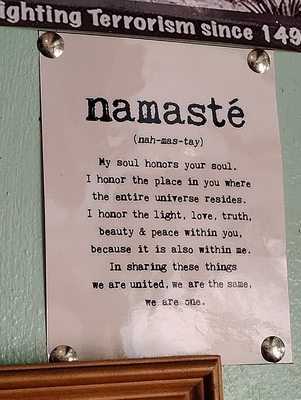 ighting Terrorism since 149
namasté
(nah-mas-tay)
My soul honors your soul.
I honor the place in you where
the entire universe resides.
I honor the light, love, truth,
beauty & peace within you,
because it is also within me.
In sharing these things
we are united, we are the same,
we are one.